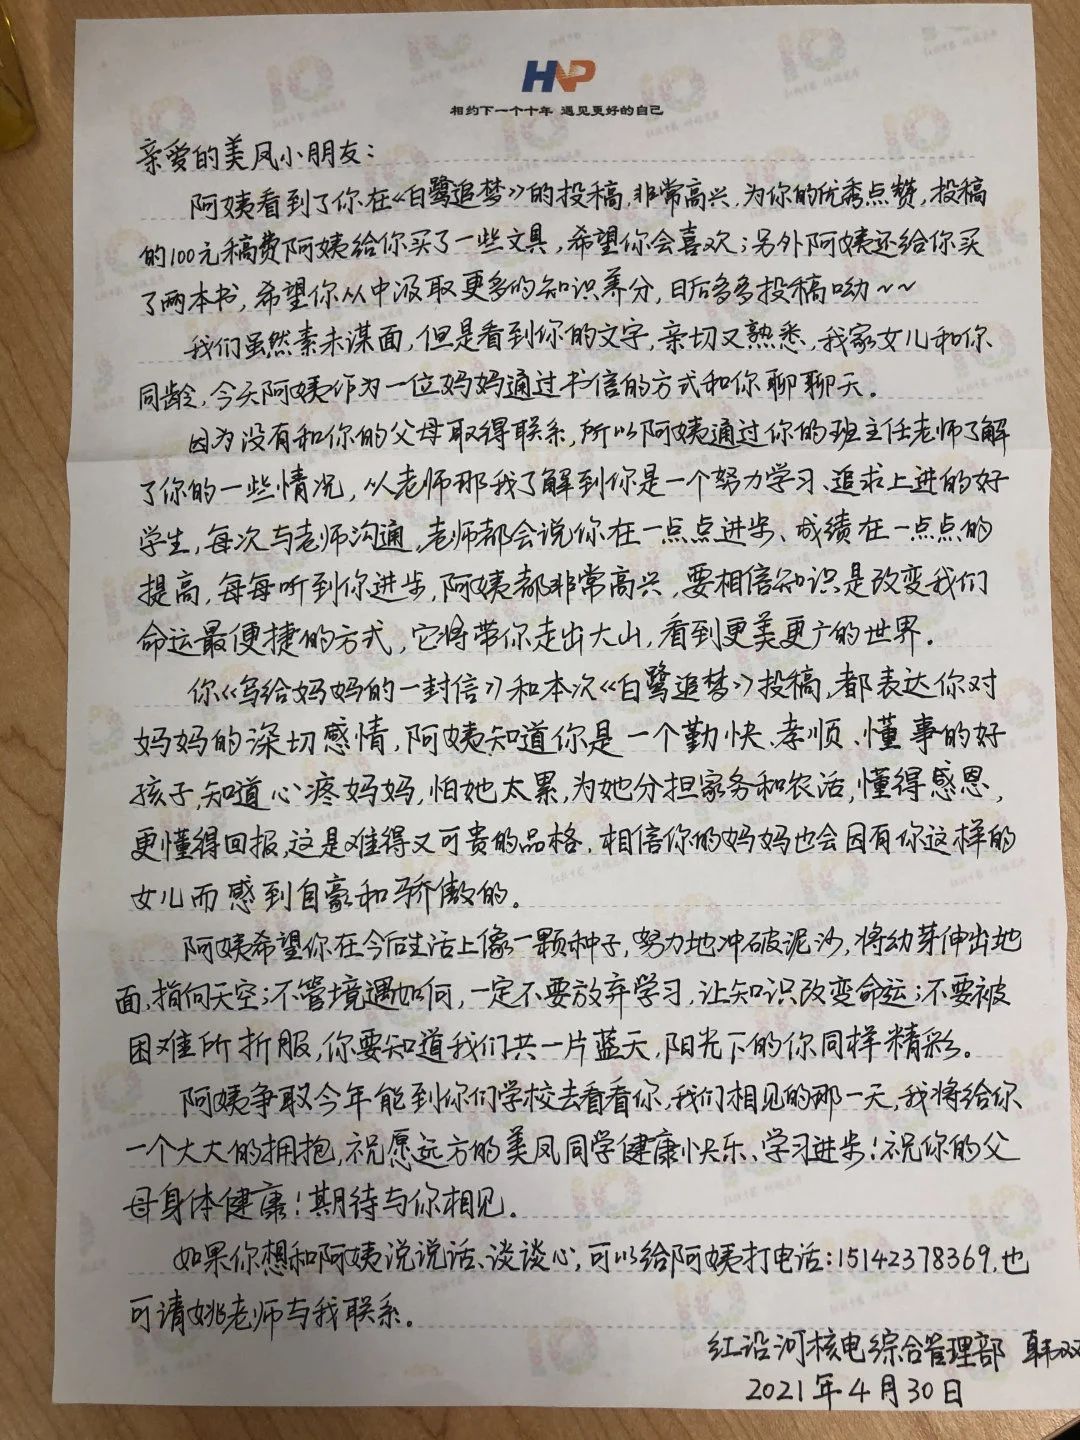 HNP
相约下一个十年 遇见更好的自己
亲爱的美凤小朋友：
阿姨看到了你在《白鹭追梦》的投稿，非常高兴，为你的优秀点赞，投稿
的100元稿费阿姨给你买了一些文具，希望你会喜欢；另外阿姨还给你买
了两本书，希望你从中汲取更多的知识养分，日后多多投稿呦～～
我们虽然素未谋面，但是看到你的文字，亲切又熟悉，我家女儿和你
同龄，今天阿姨作为一位妈妈通过书信的方式和你聊聊天。
因为没有和你的父母取得联系，所以阿姨通过你的班主任老师了解
了你的一些情况，从老师那我了解到你是一个努力学习、追求上进的好
学生，每次与老师沟通，老师都会说你在一点点进步、成绩在一点点的
提高，每每听到你进步，阿姨都非常高兴，要相信知识是改变我们
命运最便捷的方式，它将带你走出大山，看到更美更广的世界。
你《写给妈妈的一封信》和本次《白鹭追梦》投稿，都表达你对
妈妈的深切感情，阿姨知道你是一个勤快、孝顺、懂事的好
孩子，知道心疼妈妈，怕她太累，为她分担家务和农活，懂得感恩，
更懂得回报，这是难得又可贵的品格，相信你的妈妈也会因有你这样的
女儿而感到自豪和骄傲的。
阿姨希望你在今后生活上像一颗种子，努力地冲破泥沙，将幼芽伸出地
面，指向天空；不管境遇如何，一定不要放弃学习，让知识改变命运；不要被
困难所折服，你要知道我们共一片蓝天，阳光下的你同样精彩。
阿姨争取今年能到你们学校去看看你，我们相见的那一天，我将给你
一个大大的拥抱，祝愿远方的美凤同学健康快乐、学习进步！祝你的父
母身体健康！期待与你相见。
如果你想和阿姨说说话、谈谈心，可以给阿姨打电话：15142378369，也
可请姚老师与我联系。
红沿河核电综合管理部 韩双
2021年4月30日